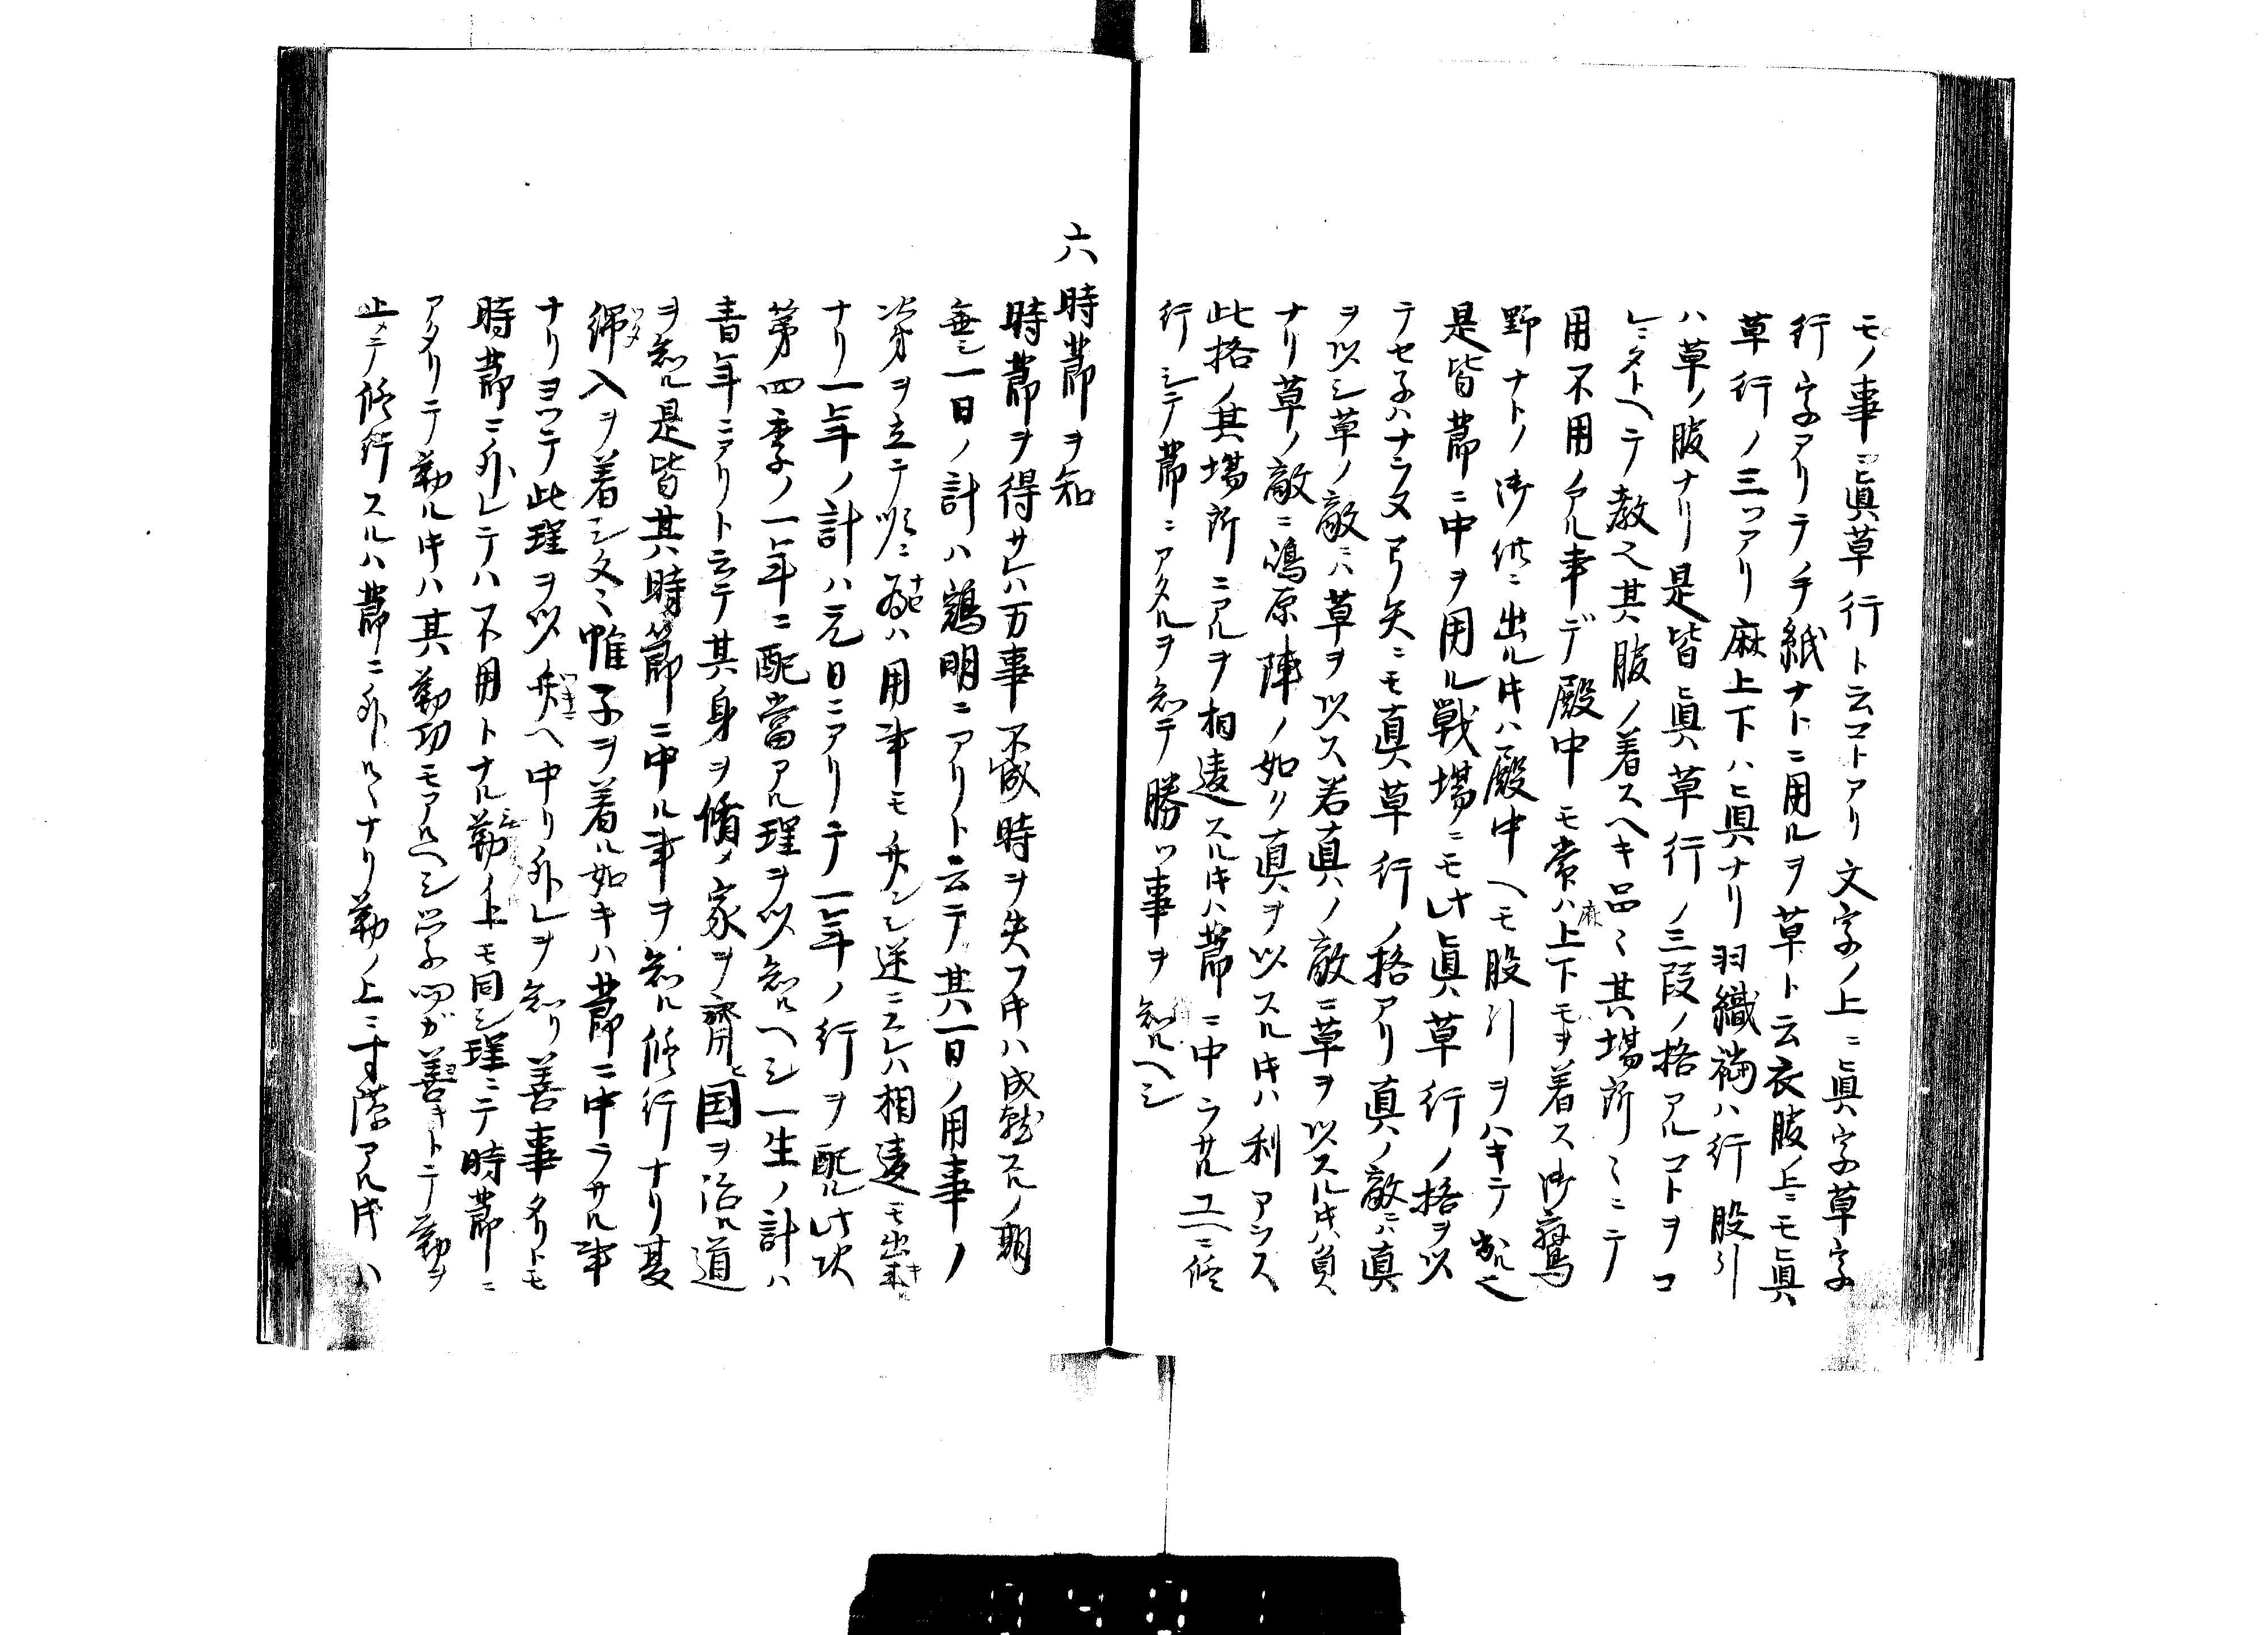 モノ事ニ眞草行ト云コトアリ文字ノ上ニ眞字草字
行字アリテ手紙ナトニ用ルヲ草ト云衣服ノ上ニモ眞
草行ノ三ツアリ麻上下ハ眞ナリ羽織袴ハ行股引
ハ草ノ服ナリ是皆眞草行ノ三段ノ格アルコトヲコ
レニタトヘテ教ヘ其服ノ着スヘキ品〻其場所〻ニテ
用不用ノアル事デ殿中モ常ハ麻上下モヲ着ス御鷹
野ナトノ御供ニ出ル㐧ハ殿中ヘモ股引ヲハキテ出ル也
是皆節ニ中ヲ用ル戰場ニモ此眞草行ノ格ヲ以
テセ子ハナラヌ弓矢ニモ眞草行ノ格アリ眞ノ敵ニハ眞
ヲ以シ草ノ敵ニハ草ヲ以ス若眞ノ敵ニ草ヲ以スル㐧ハ負
ナリ草ノ敵ニ嶋原陣ノ如ク眞ヲ以スル㐧ハ利アラス
此格ノ其場所ニアルヲ相違スル㐧ハ節ニ中ラサルユヘニ修
行シテ節ニアタルヲ知テ勝ツ事ヲ知ルヘシ
六 時節ヲ知
時節ヲ得サレハ万事不成時ヲ失フ㐧ハ成就スルノ期
無シ一日ノ計ハ鷄明ニアリト云テ其一日ノ用事ノ
次第ヲ立テ順ニ爲セハ用事モ弁シ逆ニスレハ相違モ出来
ナリ一年ノ計ハ元日ニアリテ一年ノ行ヲ配ル此次
第四季ノ一年ニ配當アル理ヲ以知ルヘシ一生ノ計ハ
青年ニアリト云テ其身ヲ脩メ家ヲ齊ヘ国ヲ治ル道
ヲ知ル是皆其時節ニ中ル事ヲ知ル修行ナリ夏
綿入ヲ着シ冬〻帷子ヲ着ル如キハ節ニ中ラサル事
ナリヨツテ此理ヲ以ヘ中リ外レヲ知リ善事タリトモ
時節ニ外レテハ不用トナル勤ノ上モ同シ理ニテ時節ニ
アタリテ勤ル㐧ハ其勤功モアルヘシ学問ガ善キトテ勤ヲ
止メテ修行スルハ節ニ外ルヽナリ勤ノ上ニ寸隙アル㐧ハ